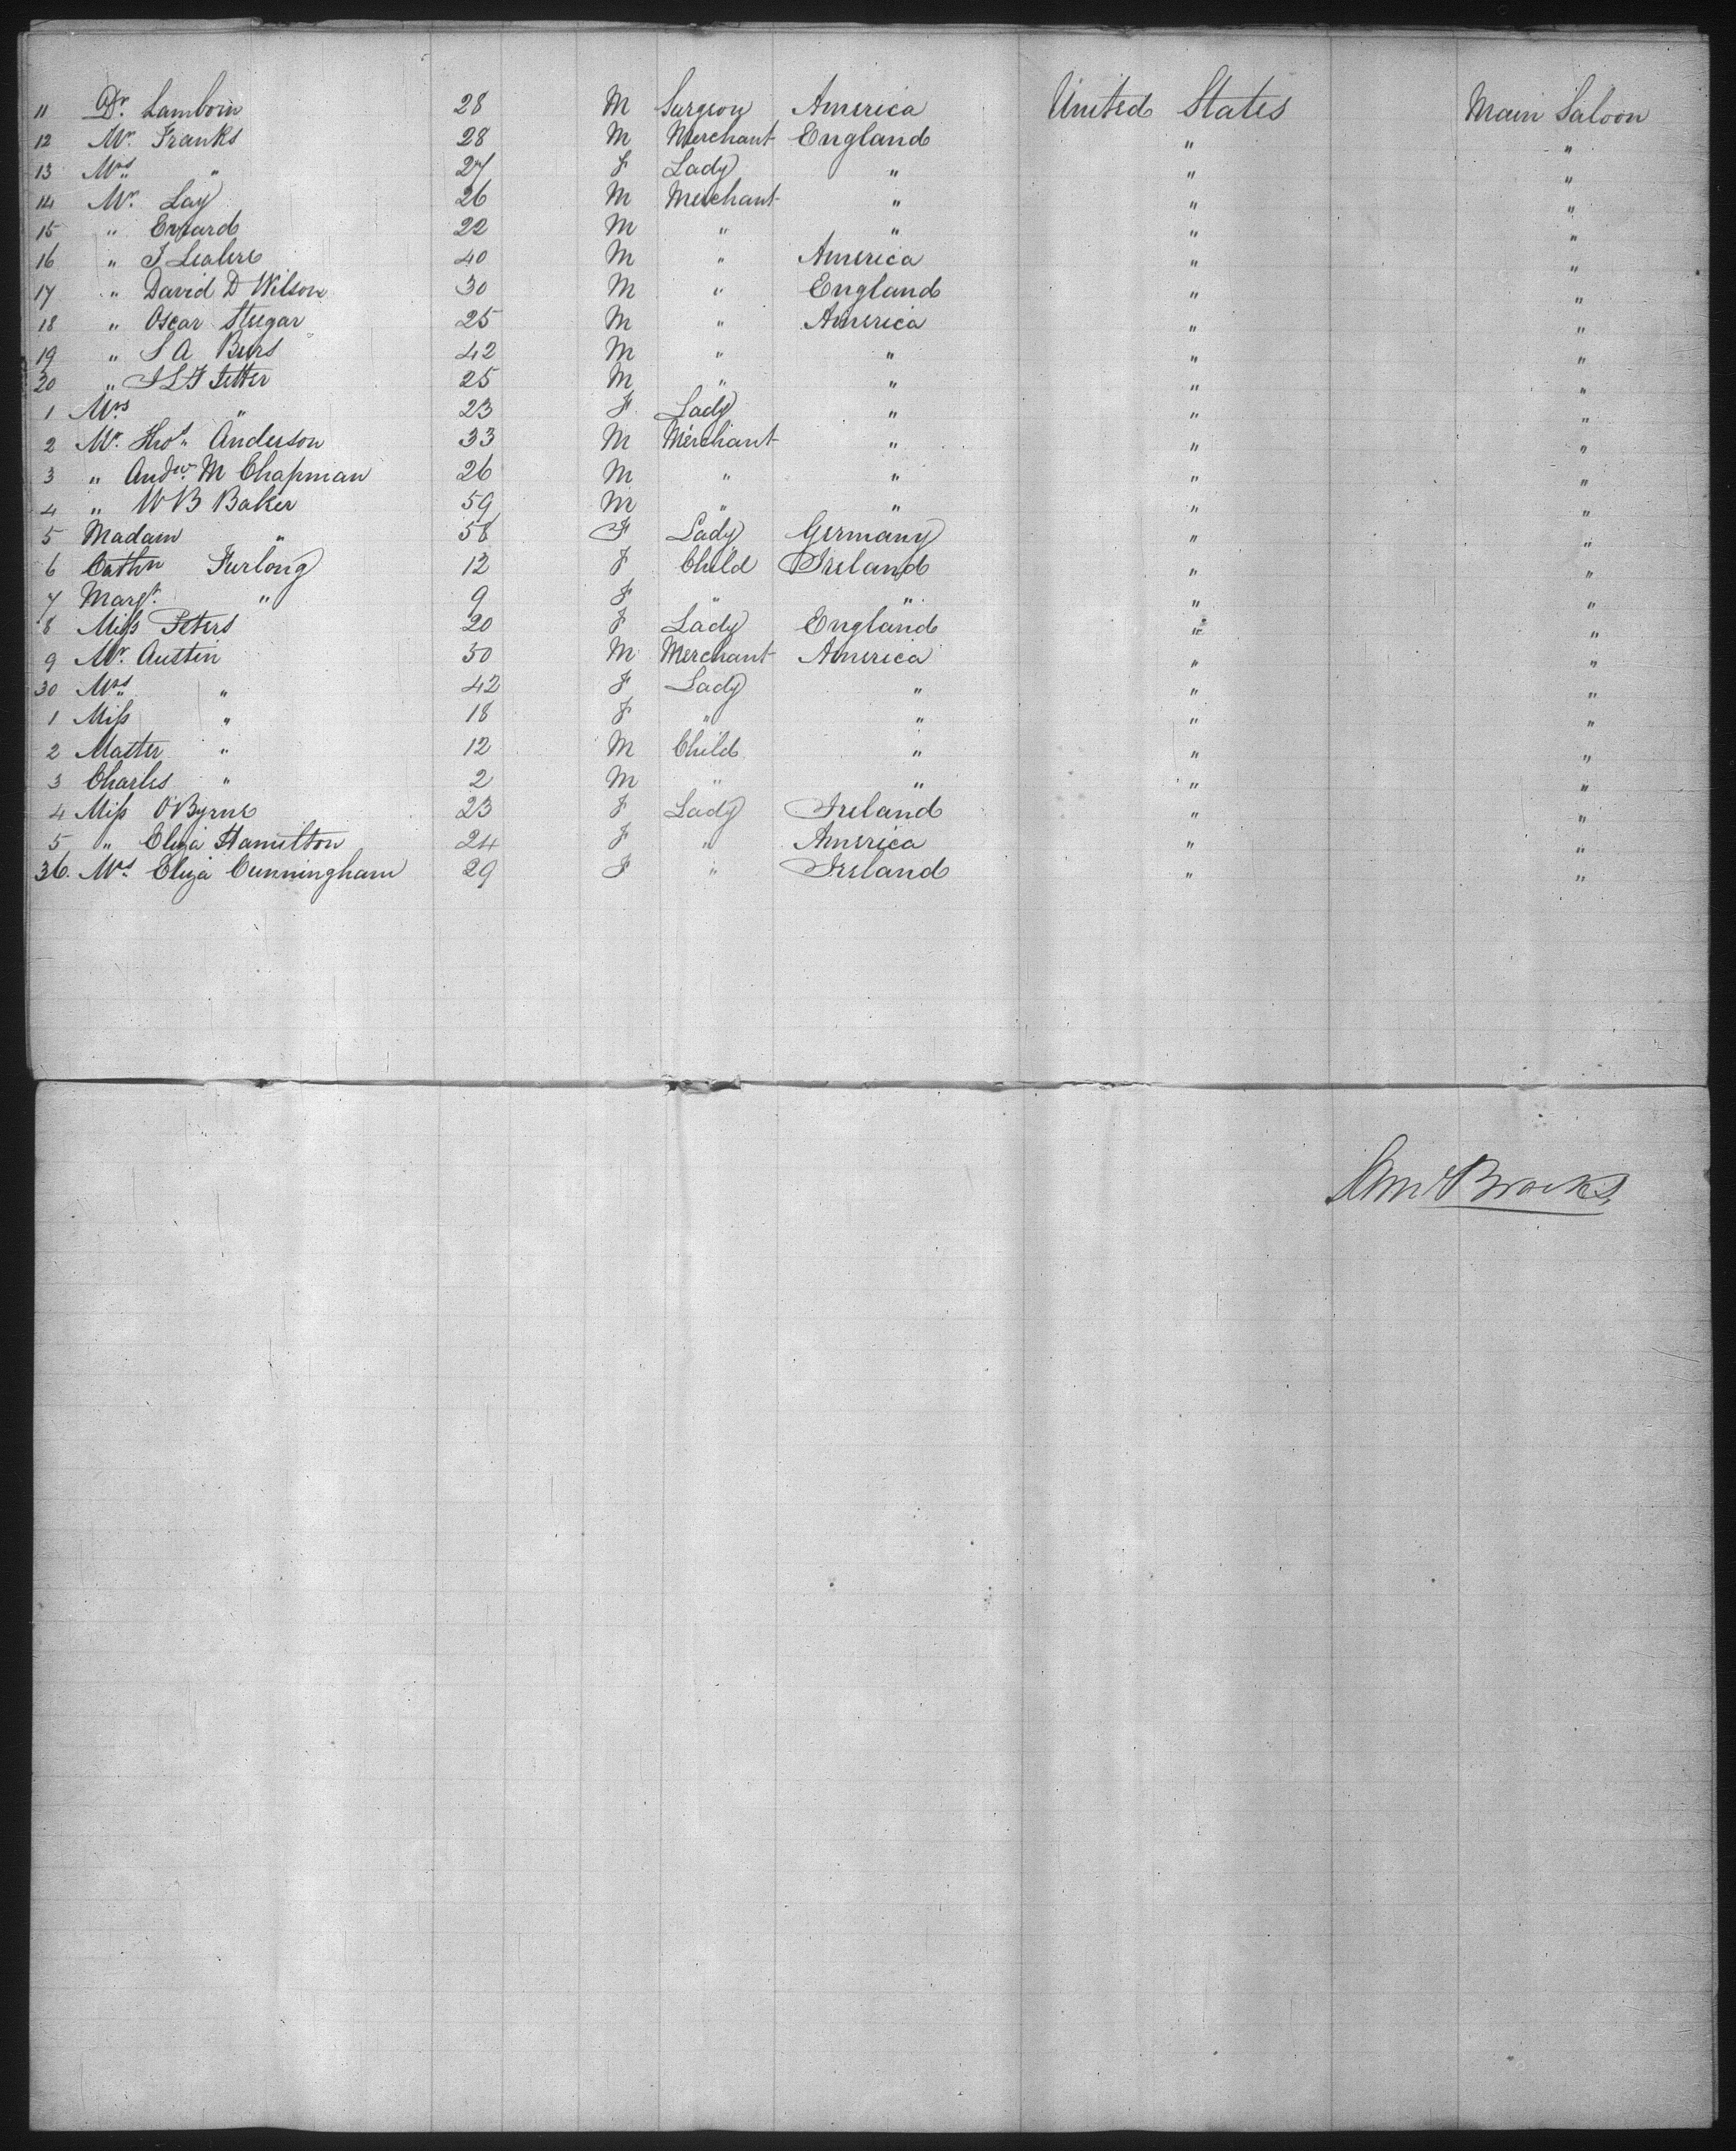 11 Dr. Lamborn 28 M Surgeon America United States Main Saloon
12 Mr. Franks 28 M Merchant England " "
13 Mrs. " 27 F Lady " " "
14 Mr. Lay 26 M Merchant " " "
15 " Errard 22 M " " " "
16 " J 40 M " America " "
17 " David D Wilson 30 M " England " "
18 " Oscar Steegar 25 M " America " "
19 " S A Burs 42 M " " " "
20 " Fetter 25 M " " " "
1 Mrs " 23 F Lady " " "
2 Mr. Thos. Anderson 33 M Merchant " " "
3 " Andw. M Chapman 26 M " " " "
4 " W B Baker 59 M " " " "
5 Madam " 58 F Lady Germany " "
6 Cathn Furlong 12 F Child Ireland " "
7 Margt. " 9 F " " " "
8 Miss Peters 20 F Lady England " "
9 Mr. Austin 50 M Merchant America " "
30 Mrs. " 42 F Lady " " "
1 Miss " 18 F " " " "
2 Master " 12 M Child " " "
3 Charles " 2 M " " " "
4 Miss O'Byrne 23 F Lady Ireland " "
5 " Eliza Hamilton 24 F " America " "
36. Mrs. Eliza Cunningham 29 F " Ireland " "
Brooks